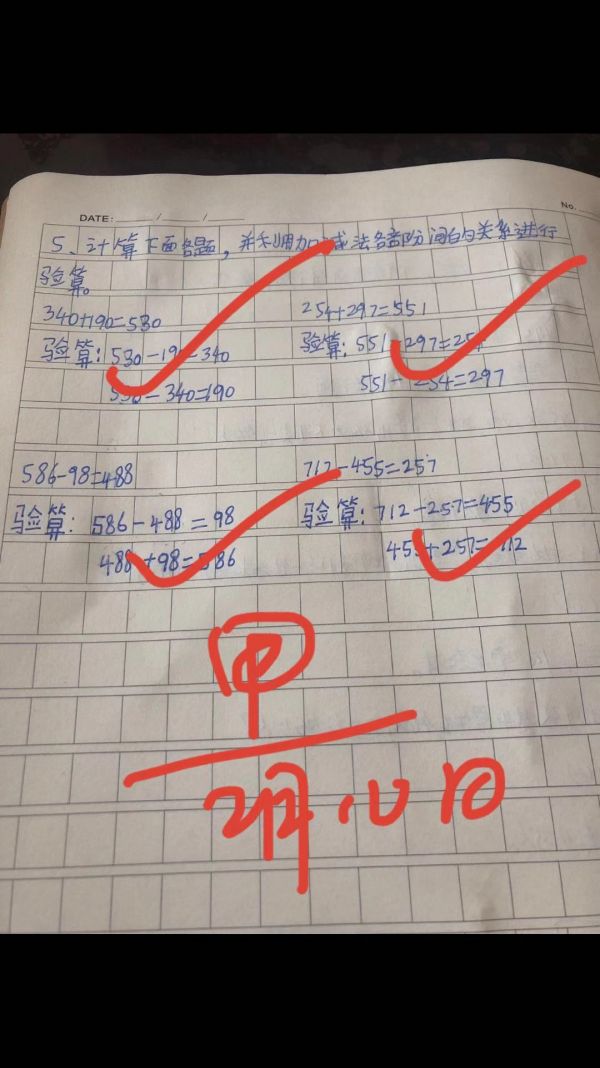 DATE: / / /
No.
5、计算下面各题，并利用加减法各部分间的关系进行
验算。
340+190=530
验算：530-190=340
530-340=190
254+297=551
验算：551-297=254
551-254=297
586-98=488
验算：586-488=98
488+98=586
712-455=257
验算：712-257=455
455+257=712
甲
2月10日